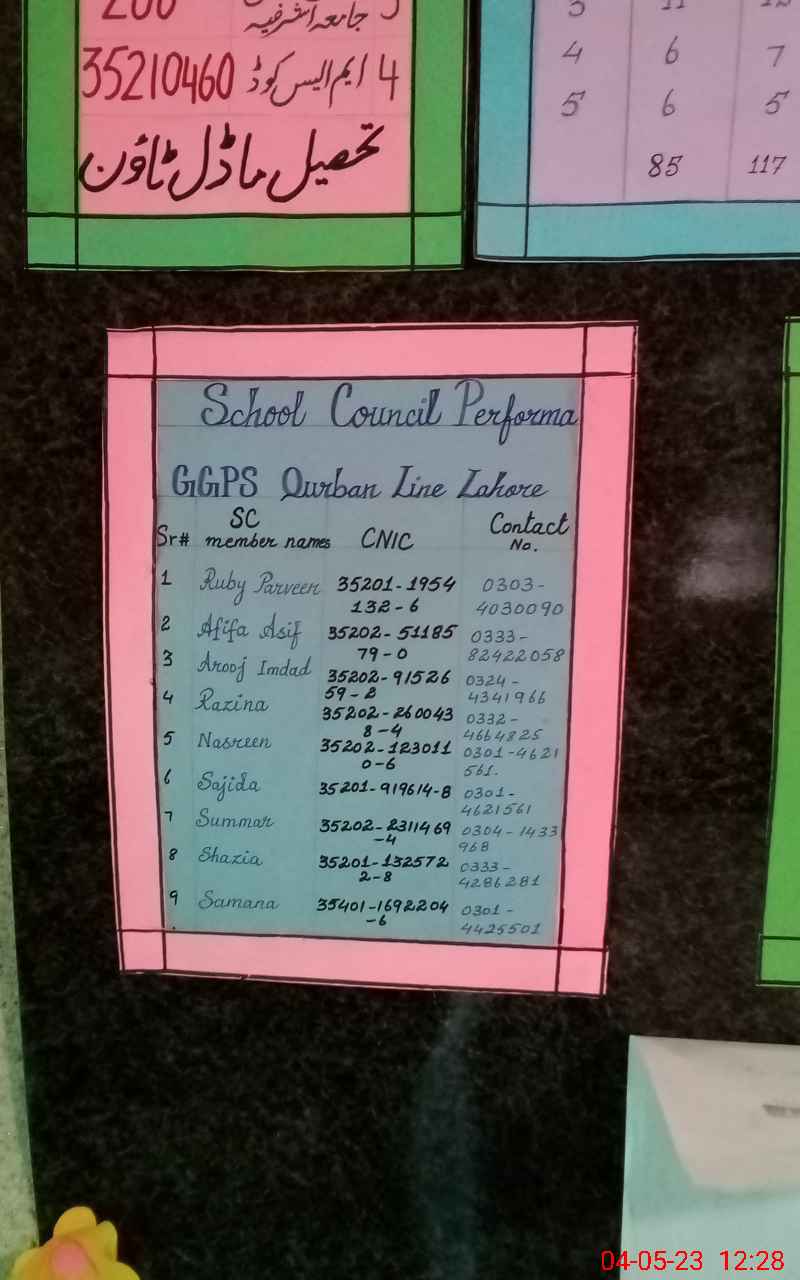 جامعہ اشرفیہ
4 ایم ایس کوڈ 35210460
تحصیل ماڈل ٹاؤن
4 6 7
5 6 5
85 117
School Council Performa
GGPS Qurban Line Lahore
Sr# SC member names CNIC Contact No.
1 Ruby Parveen 35201-1954 0303-
132-6 4030090
2 Afifa Asif 35202-51185 0333-
79-0 82422058
3 Arooj Imdad 35202-91526 0324-
59-2 4341966
4 Razina 35202-260043 0332-
8-4 4664825
5 Nasreen 35202-123011 0301-4621
0-6 561.
6 Sajida 35201-919614-8 0301-
4621561
7 Summar 35202-2311469 0304-1433
-4 968
8 Shazia 35201-132572 0333-
2-8 4286281
9 Samana 35401-1692204 0301-
-6 4425501
04-05-23 12:28